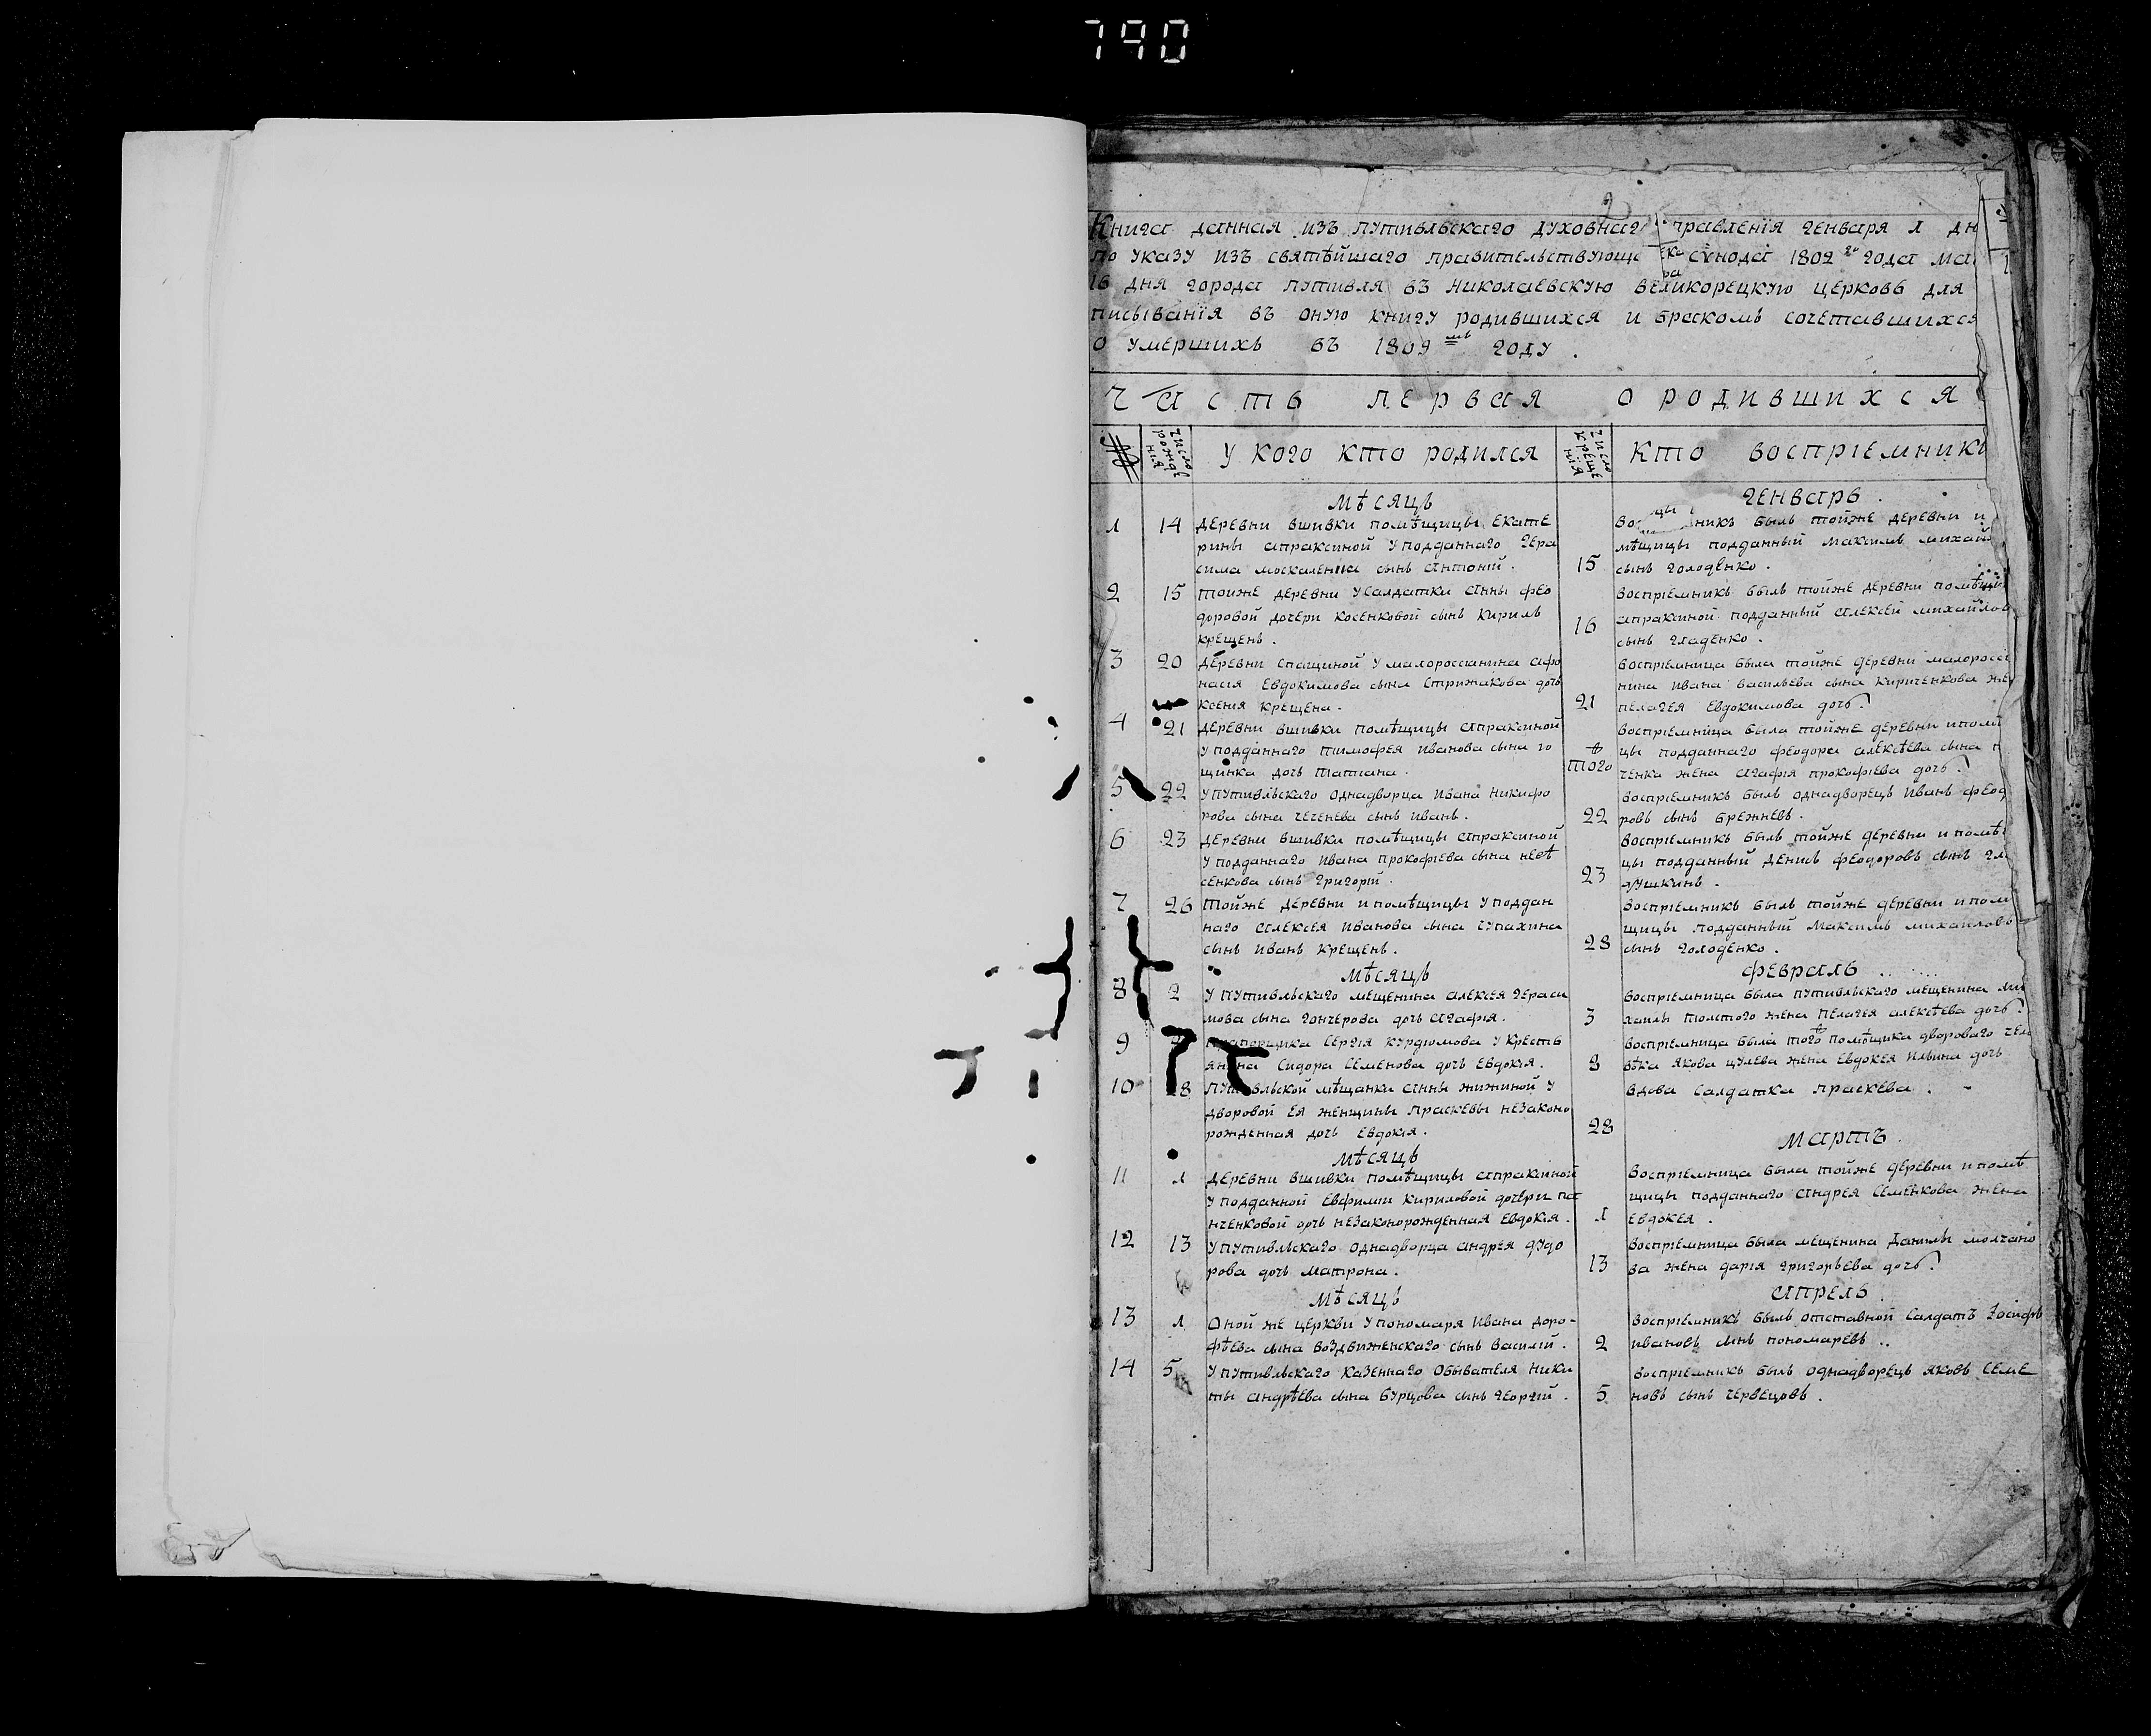 790
2
Книга данная изъ путивльскаго духовнаг правленїя генваря 1 дн
по указу изъ святѣйшаго правительствующ сѵнода 1802 го года ма
16 дня города путивля въ николаевскую великорецкую церковь для
писыванїя въ оную книгу родившихся и бракомъ сочетавшихся
о умершихъ въ 1809 мъ году .
Часть первая о родившихся
№ число рожденїя у кого кто родился число крещенїя кто воспрїемники
мѣсяцъ генварь .
1 14 деревни вшивки помѣщицы екате
рины апраксиной у подданнаго гера
сима москаленка сынъ антоній .
15
никъ былъ тойже деревни и
мѣщицы подданный максимъ михай
сынъ голоденко .
2 15 тойже деревни у салдатки анны фео
доровой дочери косенковой сынъ кирилъ
крещенъ .
16
воспрїемникъ былъ тойже деревни помѣщи
апраксиной подданный алексей михайлов
сынъ гладенко .
3 20 деревни спащиной у малороссїанина афо
насїя евдокимова сына стрижакова дочь
ксенїя крещена .
21
воспрїемница была тойже деревни малоросс
нина ивана васильева сына кириченкова же
пелагея евдокимова дочь .
4 21 деревни вшивки помѣщицы апраксиной
у подданнаго тимофея иванова сына го
щинка дочь татїана .
того
воспрїемница была тойже деревни и помѣ
цы подданнаго феодора алексѣева сына
ченка жена агафїя прокофїева дочь .
5 22 у путивльскаго однадворца ивана никифо
рова сына чеченева сынъ иванъ .
22
воспрїемникъ былъ однадворецъ иванъ феод
ровъ сынъ брежневъ .
6 23 деревни вшивки помѣщицы апраксиной
у подданнаго ивана прокофїева сына невѣ
сенкова сынъ григорїй .
23
воспрїемникъ былъ тойже деревни и помѣ
цы подданный денисъ феодоровъ сынъ гл
душкинъ .
7 26 тойже деревни и помѣщицы у поддан
наго алексея иванова сына
сынъ иванъ крещенъ .
28
воспрїемникъ былъ тойже деревни и пом
щицы подданный максимъ михаиловъ
сынъ голоденко .
мѣсяцъ февраль
8 2 у путивльскаго мещенина алексея гераси
мова сына гончерова дочь агафїя .
3
воспрїемница была путивльскаго мещенина ми
хаилы толстого жена пелагея алексѣева дочь .
9 прапорщика сергїя курдюмова у кресть
янина сидора семенова дочь евдокїя .
8
воспрїемница была того помѣщика двороваго чел
вѣка якова цулева жена евдокея ильина дочь
10 28 путивльской мѣщанки анны жижиной у
дворовой ея женщины праскевы незаконо
рожденная дочь евдокїя .
28
вдова салдатка праскева .
мѣсяцъ мартъ .
11 1 деревни вшивки помѣщицы апраксиной
у подданной евфимїи кириловой дочери па
нченковой дочь незаконорожденная евдокїя .
1
воспрїемница была тойже деревни и помѣ
щицы подданнаго андрея семенкова жена
евдокея .
12 13 у путивльскаго однадворца андрея фудо
рова дочь матрона .
13
воспрїемница была мещенина данилы молчано
ва жена дарїя григорьева дочь .
мѣсяцъ апрель .
13 1 оной же церкви у пономаря ивана доро-
фѣева сына воздвиженскаго сынъ василїй .
2
воспрїемникъ былъ отставной салдатъ іосифъ
ивановъ сынъ пономаревъ .
14 5 у путивльскаго казеннаго обывателя ники
ты андрѣева сына бурцова сынъ георгїй .
5
воспрїемникъ былъ однадворецъ яковъ семе
новъ сынъ червецовъ .